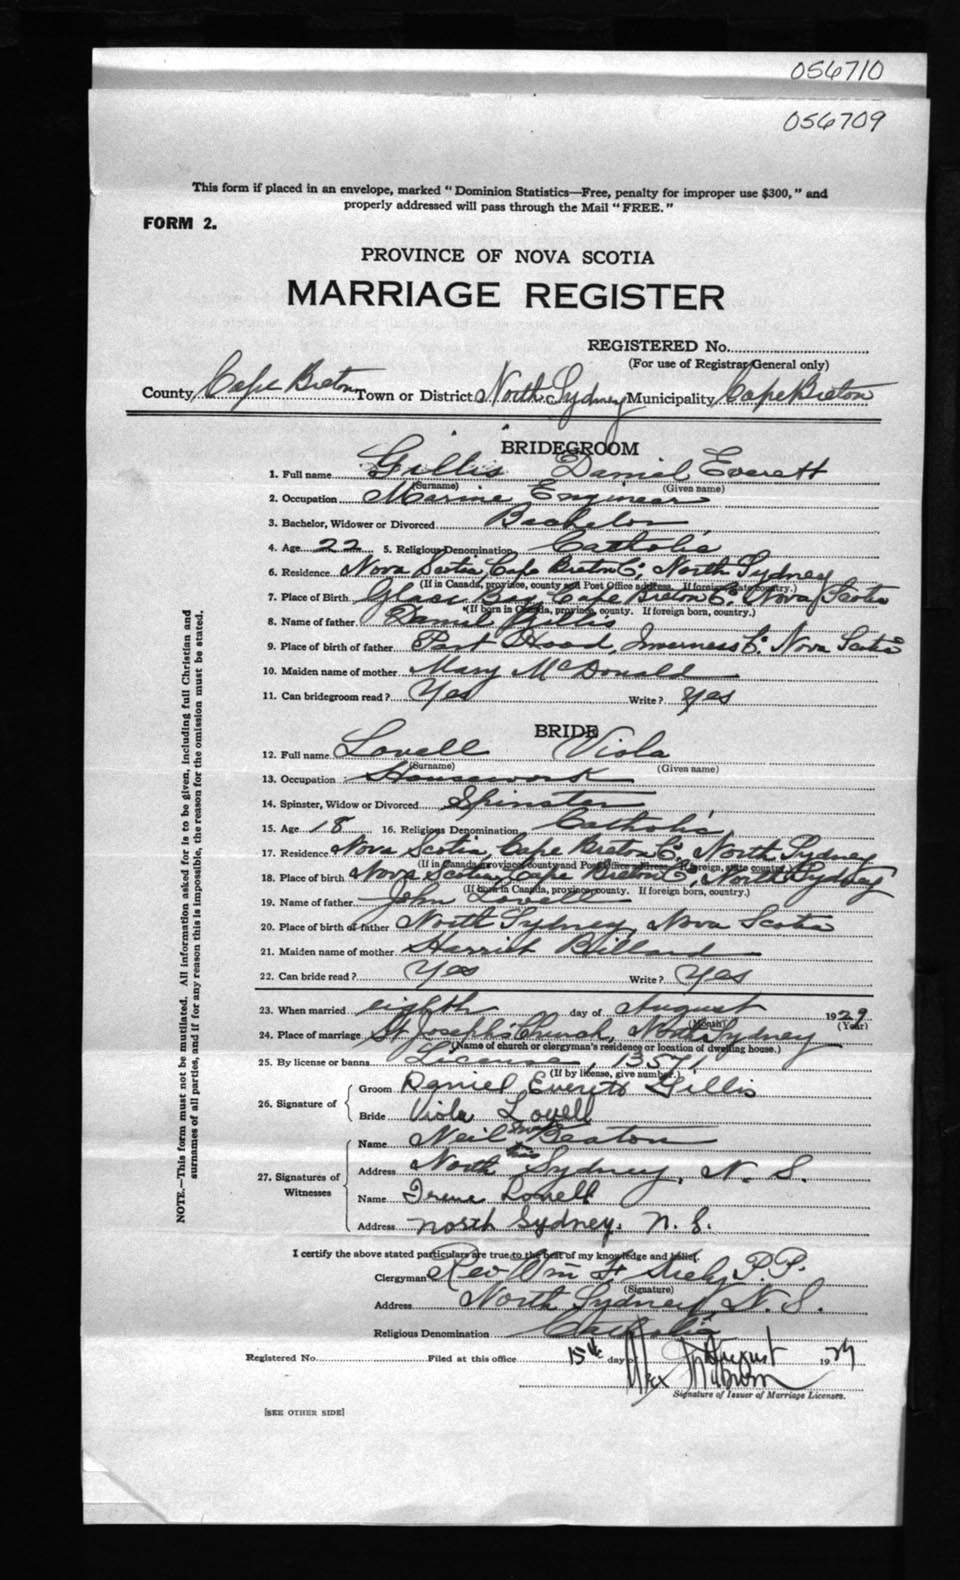 056710
056709
This form if placed in an envelope, marked "Dominion Statistics—Free, penalty for improper use $300," and
properly addressed will pass through the Mail "FREE."
FORM 2.
PROVINCE OF NOVA SCOTIA
MARRIAGE REGISTER
REGISTERED No.
(For use of Registrar General only)
County Cape Breton Town or District North Sydney Municipality Cape Breton
BRIDEGROOM
1. Full name Gillis Daniel Everett
(Surname) (Given name)
2. Occupation Marine Engineer
3. Bachelor, Widower or Divorced Bachelor
4. Age 22 5. Religious Denomination Catholic
6. Residence Nova Scotia, Cape Breton Co. North Sydney
(If in Canada, province, county and Post Office address. If foreign, state country.)
7. Place of Birth Glace Bay, Cape Breton Co. Nova Scotia
(If born in Canada, province, county. If foreign born, country.)
8. Name of father Daniel Gillis
9. Place of birth of father Port Hood, Inverness Co. Nova Scotia
10. Maiden name of mother Mary McDonald
11. Can bridegroom read? Yes Write? Yes
BRIDE
12. Full name Lovell Viola
(Surname) (Given name)
13. Occupation Housework
14. Spinster, Widow or Divorced Spinster
15. Age 18 16. Religious Denomination Catholic
17. Residence Nova Scotia, Cape Breton Co. North Sydney
(If in Canada, province, county and Post Office address. If foreign, state country.)
18. Place of birth Nova Scotia, Cape Breton Co, North Sydney
(If born in Canada, province, county. If foreign born, country.)
19. Name of father John Lovell
20. Place of birth of father North Sydney, Nova Scotia
21. Maiden name of mother Harriet Billard
22. Can bride read? Yes Write? Yes
23. When married eighth day of August 1929
(Month) (Year)
24. Place of marriage St Joseph's Church, North Sydney
(Name of church or clergyman's residence or location of dwelling house.)
25. By license or banns License, 1357
(If by license, give number.)
26. Signature of
Groom Daniel Everett Gillis
Bride Viola Lovell
27. Signatures of Witnesses
Name Neil Beaton
Address North Sydney, N. S.
Name Irene Lovell
Address North Sydney, N. S.
I certify the above stated particulars are true to the best of my knowledge and belief.
Clergyman Rev Wm F. P.P.
(Signature)
Address North Sydney, N. S.
Religious Denomination Catholic
Registered No. Filed at this office 15th day of August 1929
Alex
Signature of Issuer of Marriage Licenses.
[SEE OTHER SIDE]
NOTE.—This form must not be mutilated. All information asked for is to be given, including full Christian and
surnames of all parties, and if for any reason this is impossible, the reason for the omission must be stated.